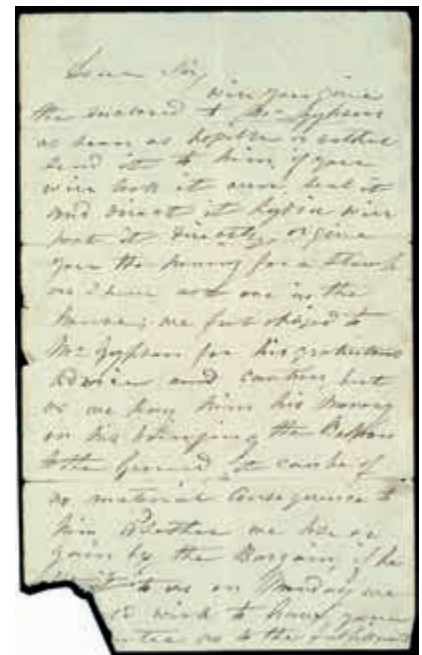 Dear Sir,
will you give
the enclosed to Mr Gypson
as soon as possible or rather
send it to him, if you
will look it over, seal it
and direct it Lydia will
post it directly, or give
you the money for a Stamp
as I have not one in the
house; we feel obliged to
Mr Gypson for his gratuitous
advice and caution but
as we pay him his money
on his bringing the Balloon
to the Ground, it can be of
no material Consequence to
him whether we lose or
gain by the Bargain, if he
it to us on Monday we
wish to have your
to the